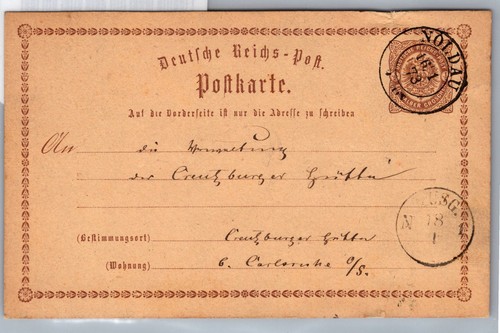 Deutsche Reichs-Post.
Postkarte.
NOLDAU
Auf die Vorderseite ist nur die Adresse zu schreiben
An die Verwaltung
der Creutzburger Hütte
AUSG.
N 18 1
1
(Bestimmungsort) Creutzburger Hütte
(Wohnung) b. Carlsruhe O/S.